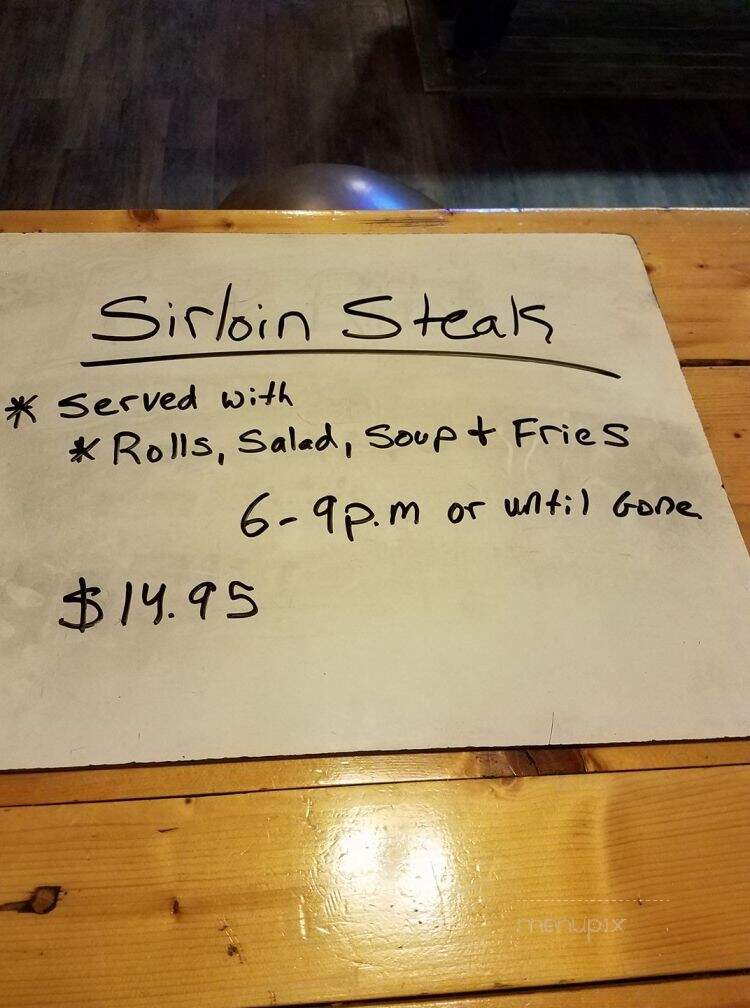 Sirloin Steak
* Served with
* Rolls, Salad, Soup + Fries
6-9p.m or until Gone
$14.95
menupix